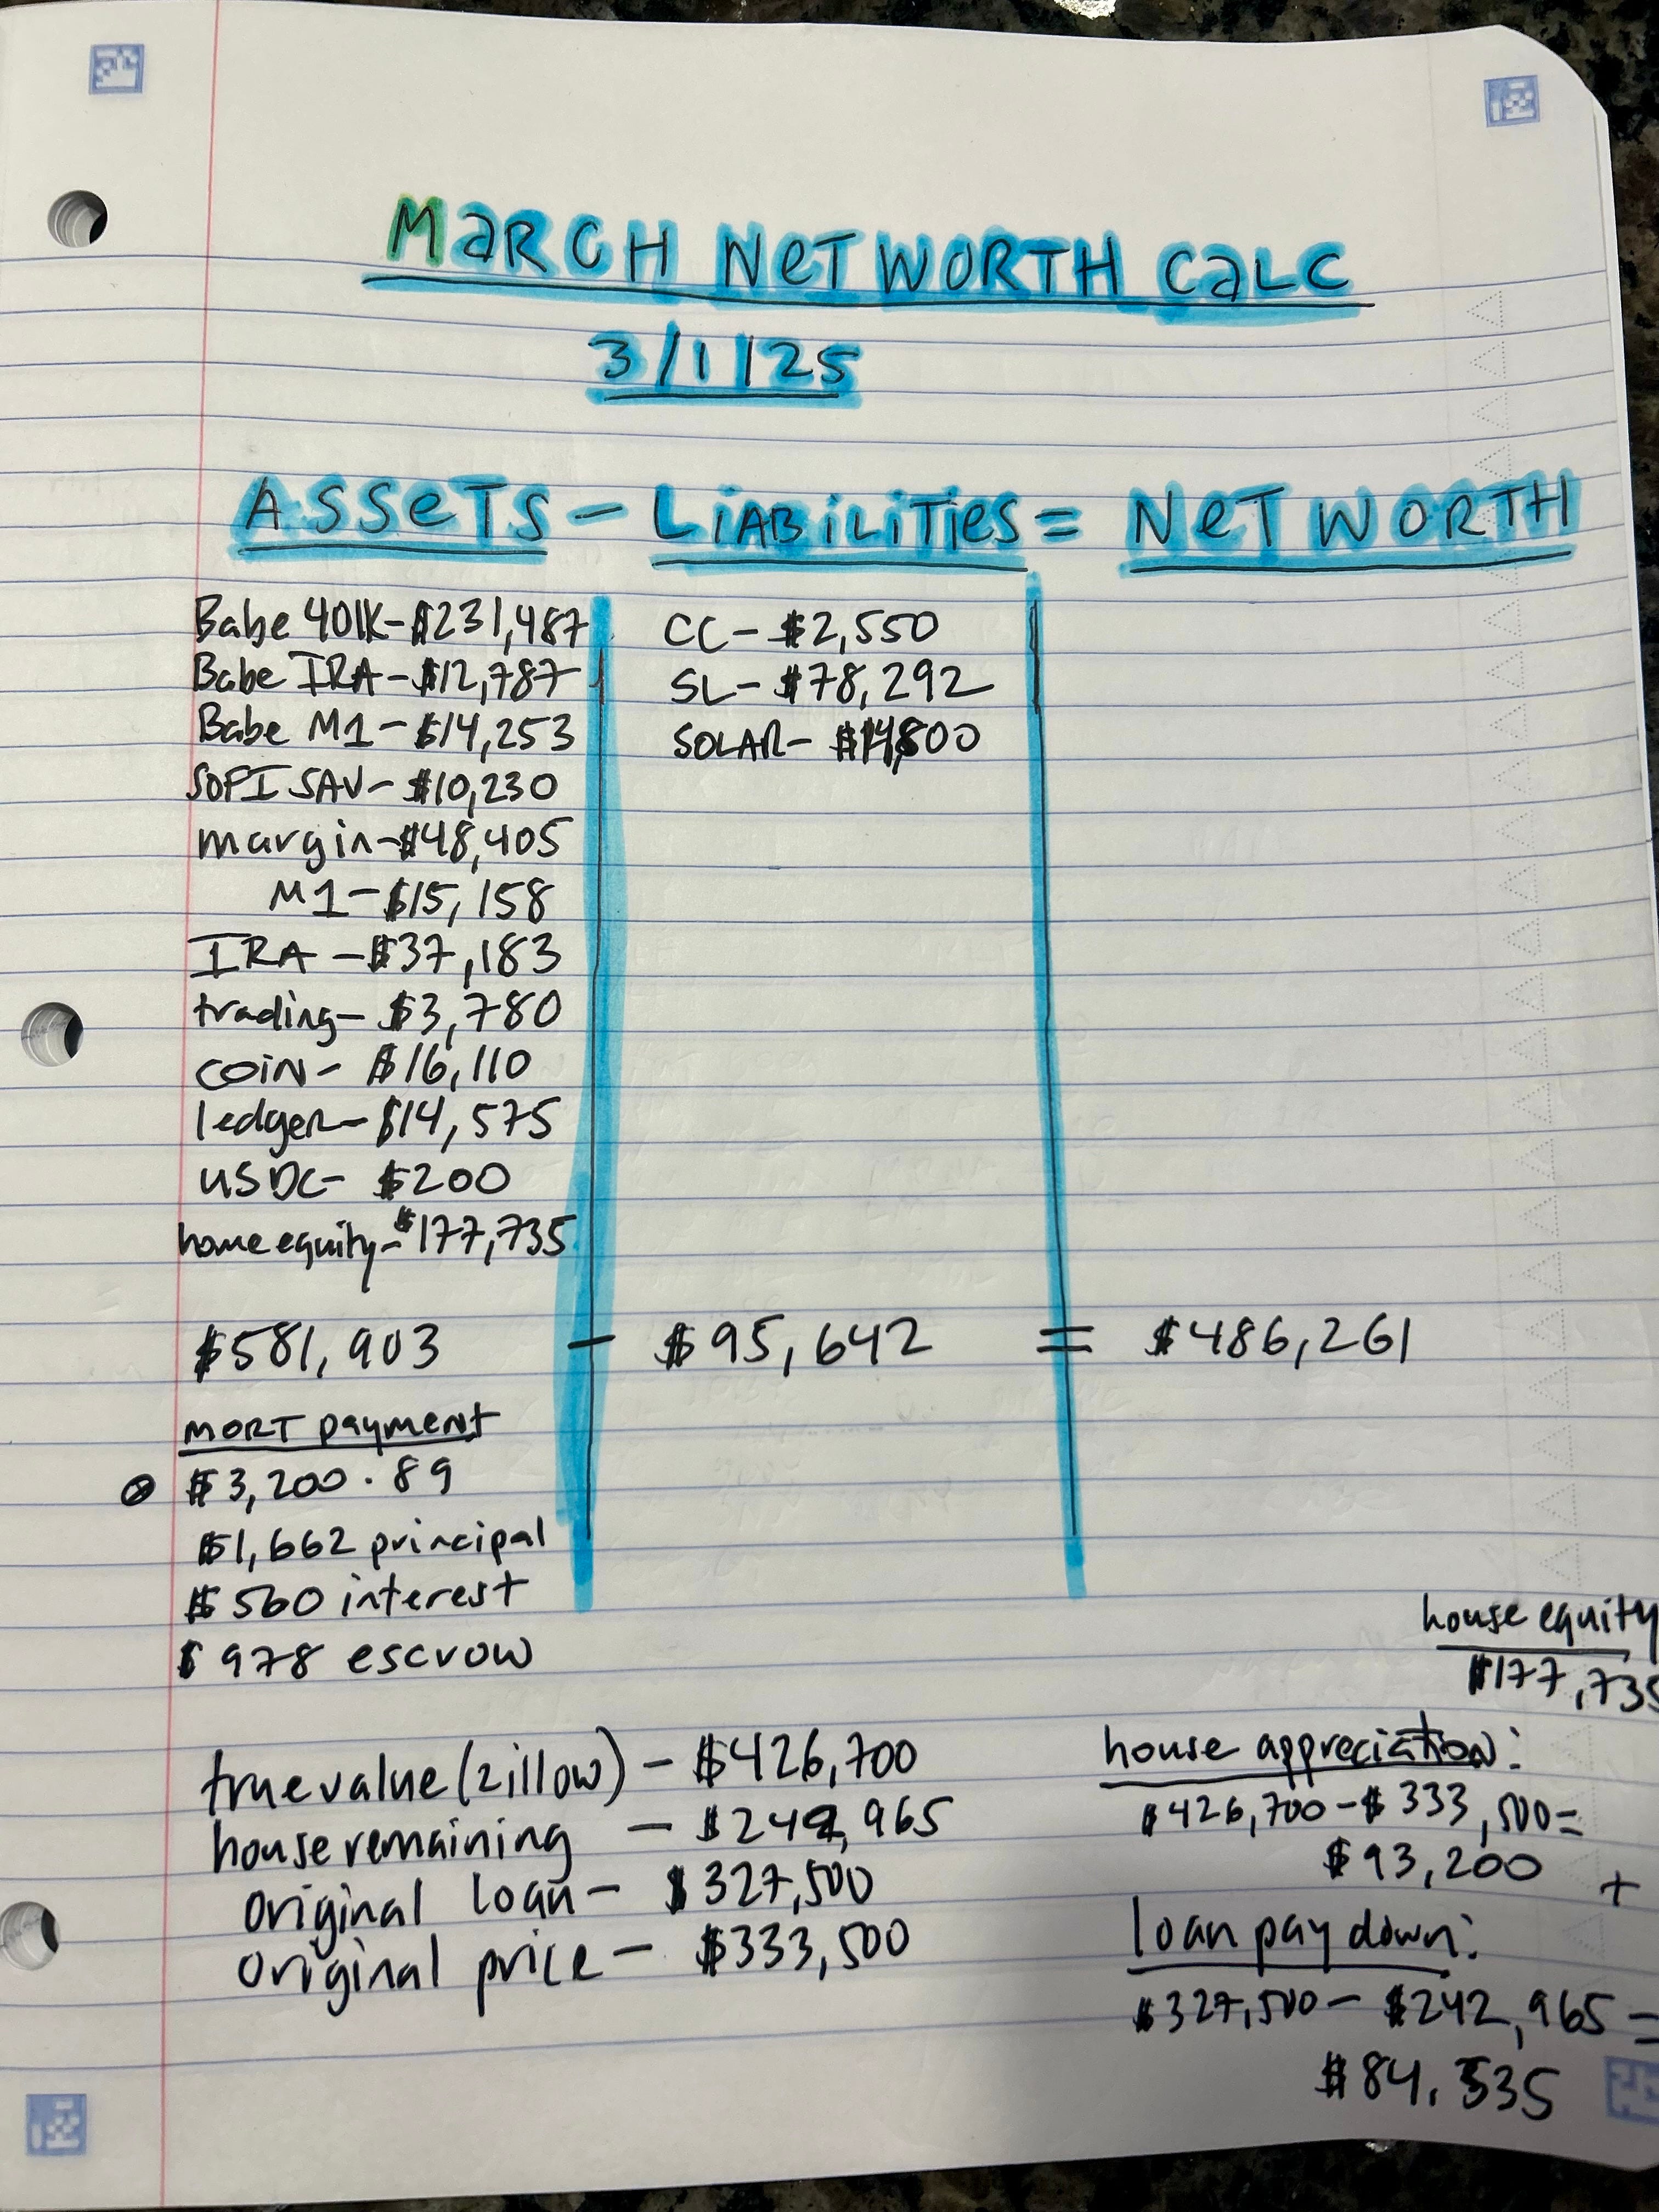 MARCH NET WORTH CALC
3/1/25
ASSETS - LIABILITIES = NET WORTH
Babe 401K - $231,487
Babe IRA - $12,787
Babe M1 - $14,253
SOFI SAV - $10,230
margin - $48,405
M1 - $15,158
IRA - $37,183
trading - $3,780
COIN - $16,110
ledger - $14,575
USDC - $200
home equity - $177,735
CC - $2,550
SL - $78,292
SOLAR - $14,800
$581,903 - $95,642 = $486,261
MORT payment
$3,200.89
$1,662 principal
$560 interest
$978 escrow
true value (zillow) - $426,700
house remaining - $242,965
original loan - $327,500
original price - $333,500
house equity
$177,735
house appreciation:
$426,700 - $333,500 =
$93,200 +
loan pay down:
$327,500 - $242,965 =
$84,535